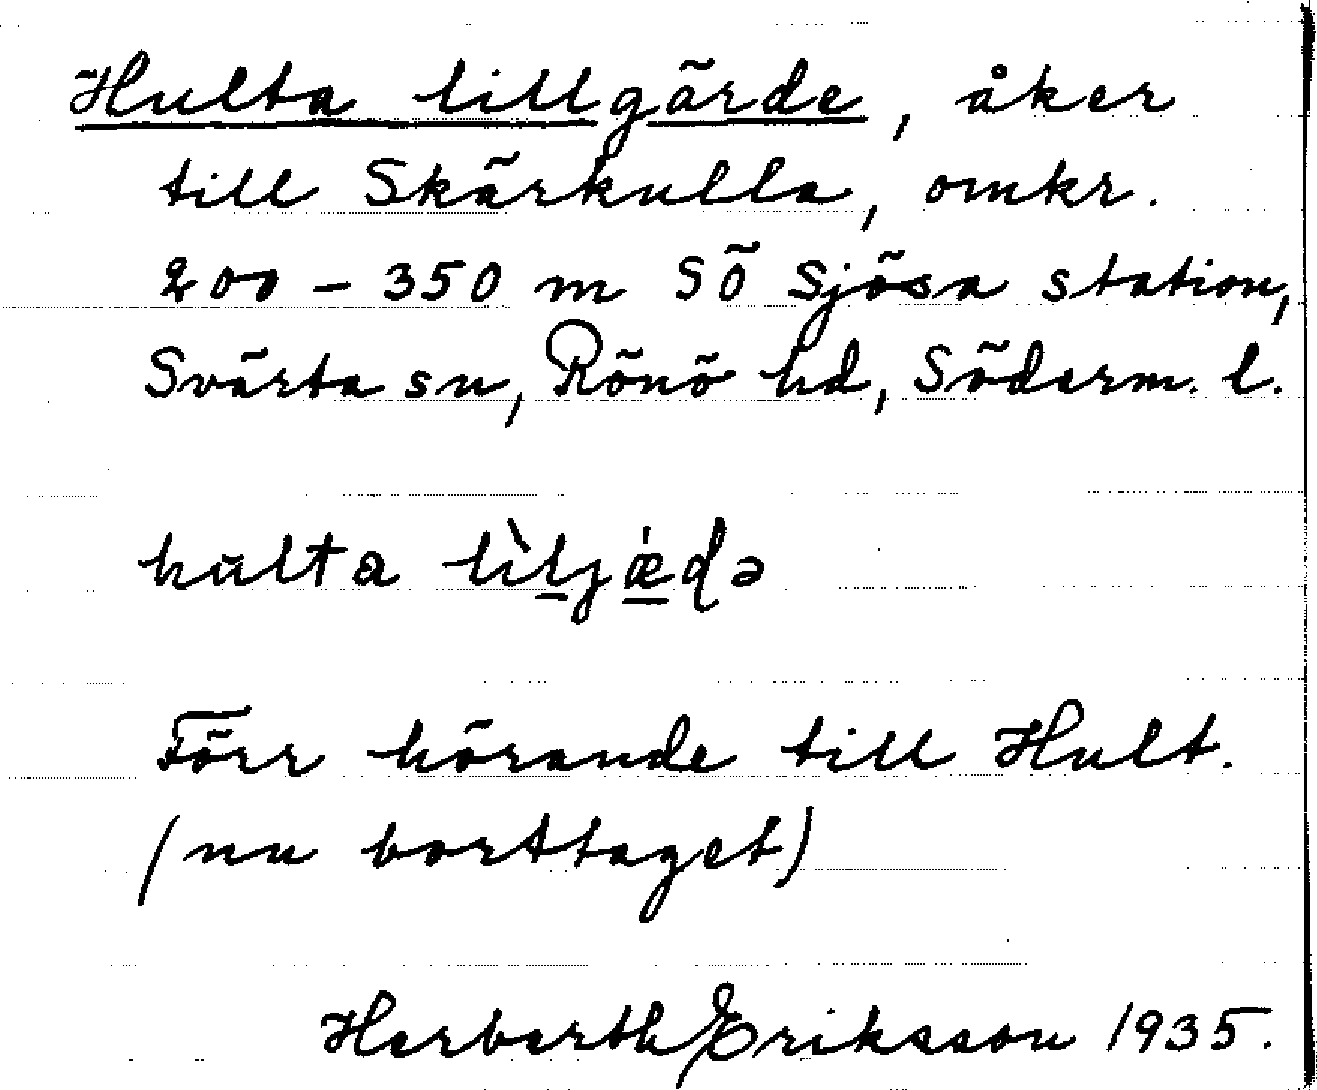 Hulta lillgärde, åker
till Skärkulla, omkr.
200 – 350 m SÖ Sjösa station,
Svärta sn, Rönö hd, Söderm. l.
hulta lìljæ̀ɖə
Förr hörande till Hult.
(nu borttaget)
Herberth Eriksson 1935.